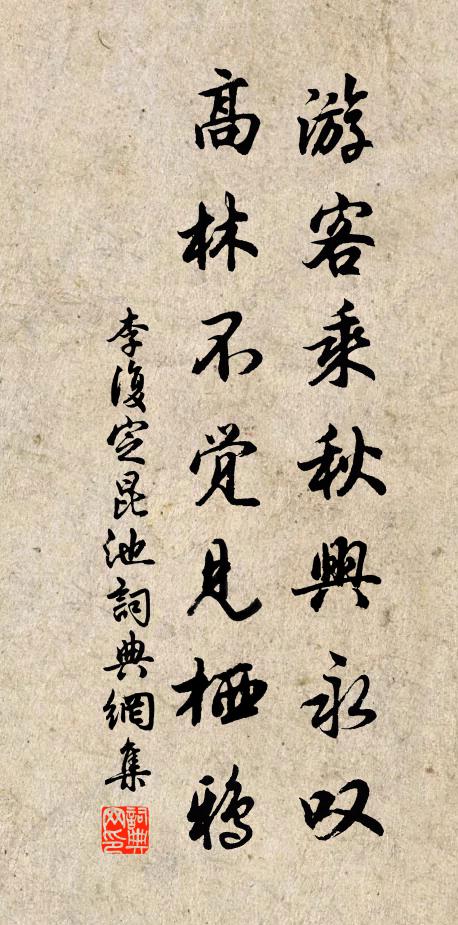 游客乘秋興永叹
高林不觉見栖鴉
李復定昆池詞典網集
詞典网印